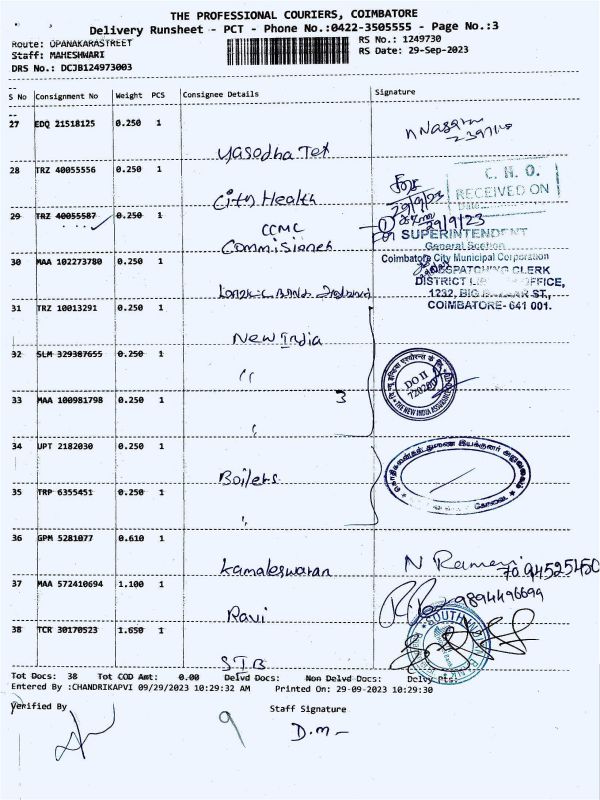 THE PROFESSIONAL COURIERS, COIMBATORE
Delivery Runsheet - PCT - Phone No.:0422-3505555 - Page No.:3
Route: OPANAKARASTREET
RS No.: 1249730
Staff: MAHESHWARI
RS Date: 29-Sep-2023
DRS No.: DCJB124973003
S No Consignment No Weight PCS Consignee Details Signature
27 EDQ 21518125 0.250 1
Yasodha Tex
28 TRZ 40055556 0.250 1
City Health
C. H. O.
RECEIVED ON
Date
29/9/23
29 TRZ 40055587 0.250 1
CCMC
Commisioner
29/9/23
SUPERINTENDENT
General Section
Coimbatore City Municipal Corporation
30 MAA 102273780 0.250 1
DESPATCHING CLERK
DISTRICT OFFICE,
1232, BIG ST.,
COIMBATORE- 641 001.
31 TRZ 10013291 0.250 1
New India
32 SLM 329387655 0.250 1
"
DO II
THE NEW INDIA ASSURANCE
33 MAA 100981798 0.250 1
3
"
34 UPT 2182030 0.250 1
Boilers
35 TRP 6355451 0.250 1
"
36 GPM 5281077 0.610 1
Kamaleswaran
N Ramani
7094525450
37 MAA 572410694 1.100 1
Ravi
9894496694
38 TCR 30170523 1.650 1
SIB
SOUTH
Tot Docs: 38 Tot COD Amt: 0.00 Delvd Docs: Non Delvd Docs: Delvy Pts:
Entered By :CHANDRIKAPVI 09/29/2023 10:29:32 AM Printed On: 29-09-2023 10:29:30
Verified By
Staff Signature
D.M-